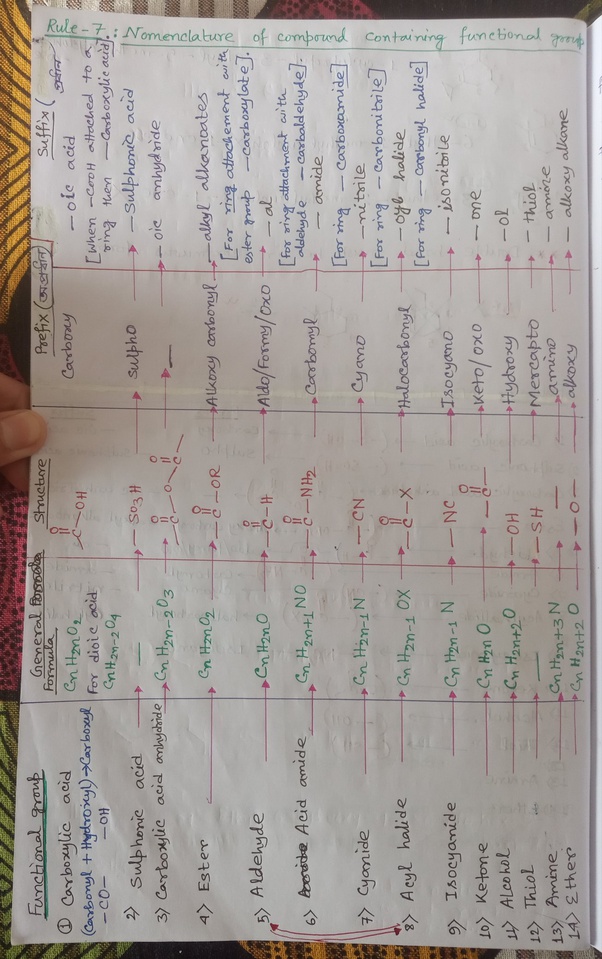 Rule-7.: Nomenclature of compound containing functional group
Functional group General Formula Structure Prefix Suffix
① Carboxylic acid CnH2nO2 O=C-OH Carboxy - oic acid
(Carbonyl + Hydroxyl)→Carboxyl For dioic acid [when -COOH attached to a
-CO- -OH CnH2n-2O4 ring then - Carboxylic acid]
2) Sulphonic acid — -SO3H Sulpho - Sulphonic acid
3) Carboxylic acid anhydride CnH2n-2O3 -C(=O)-O-C(=O)- — - oic anhydride
4) Ester CnH2nO2 -C(=O)-OR Alkoxy carbonyl - alkyl alkanoates
[For ring attachement with
ester group - Carboxylate].
5) Aldehyde CnH2nO -C(=O)-H Aldo/Formy/oxo - al
[For ring attachment with
aldehyde - carbaldehyde].
6) Acid amide CnH2n+1NO -C(=O)-NH2 Carbomyl - amide
[For ring - Carboxamide]
7) Cyanide CnH2n-1N -CN Cyano - nitrile
[For ring - Carbonitrile]
8) Acyl halide CnH2n-1OX -C(=O)-X Halocarbonyl - oyl halide
[For ring - Carbonyl halide]
9) Isocyanide CnH2n-1N -NC Isocyano - isonitrile
10) Ketone CnH2nO -C(=O)- Keto/oxo - one
11) Alcohol CnH2n+2O -OH Hydroxy - ol
12) Thiol — -SH Mercapto - thiol
13) Amine CnH2n+3N — amino - amine
14) Ether CnH2n+2O -O- alkoxy - alkoxy alkane